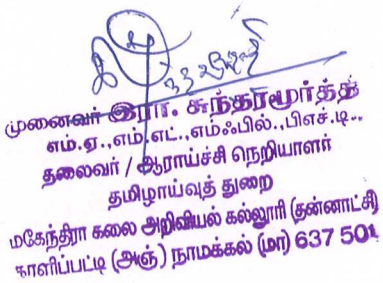 முனைவர் இரா. சுந்தரமூர்த்தி
எம்.ஏ.,எம்.எட்.,எம்ஃபில்.,பிஎச்.டி..
தலைவர் / ஆராய்ச்சி நெறியாளர்
தமிழாய்வுத் துறை
மகேந்திரா கலை அறிவியல் கல்லூரி (தன்னாட்சி)
காளிப்பட்டி (அஞ்) நாமக்கல் (மா) 637 501